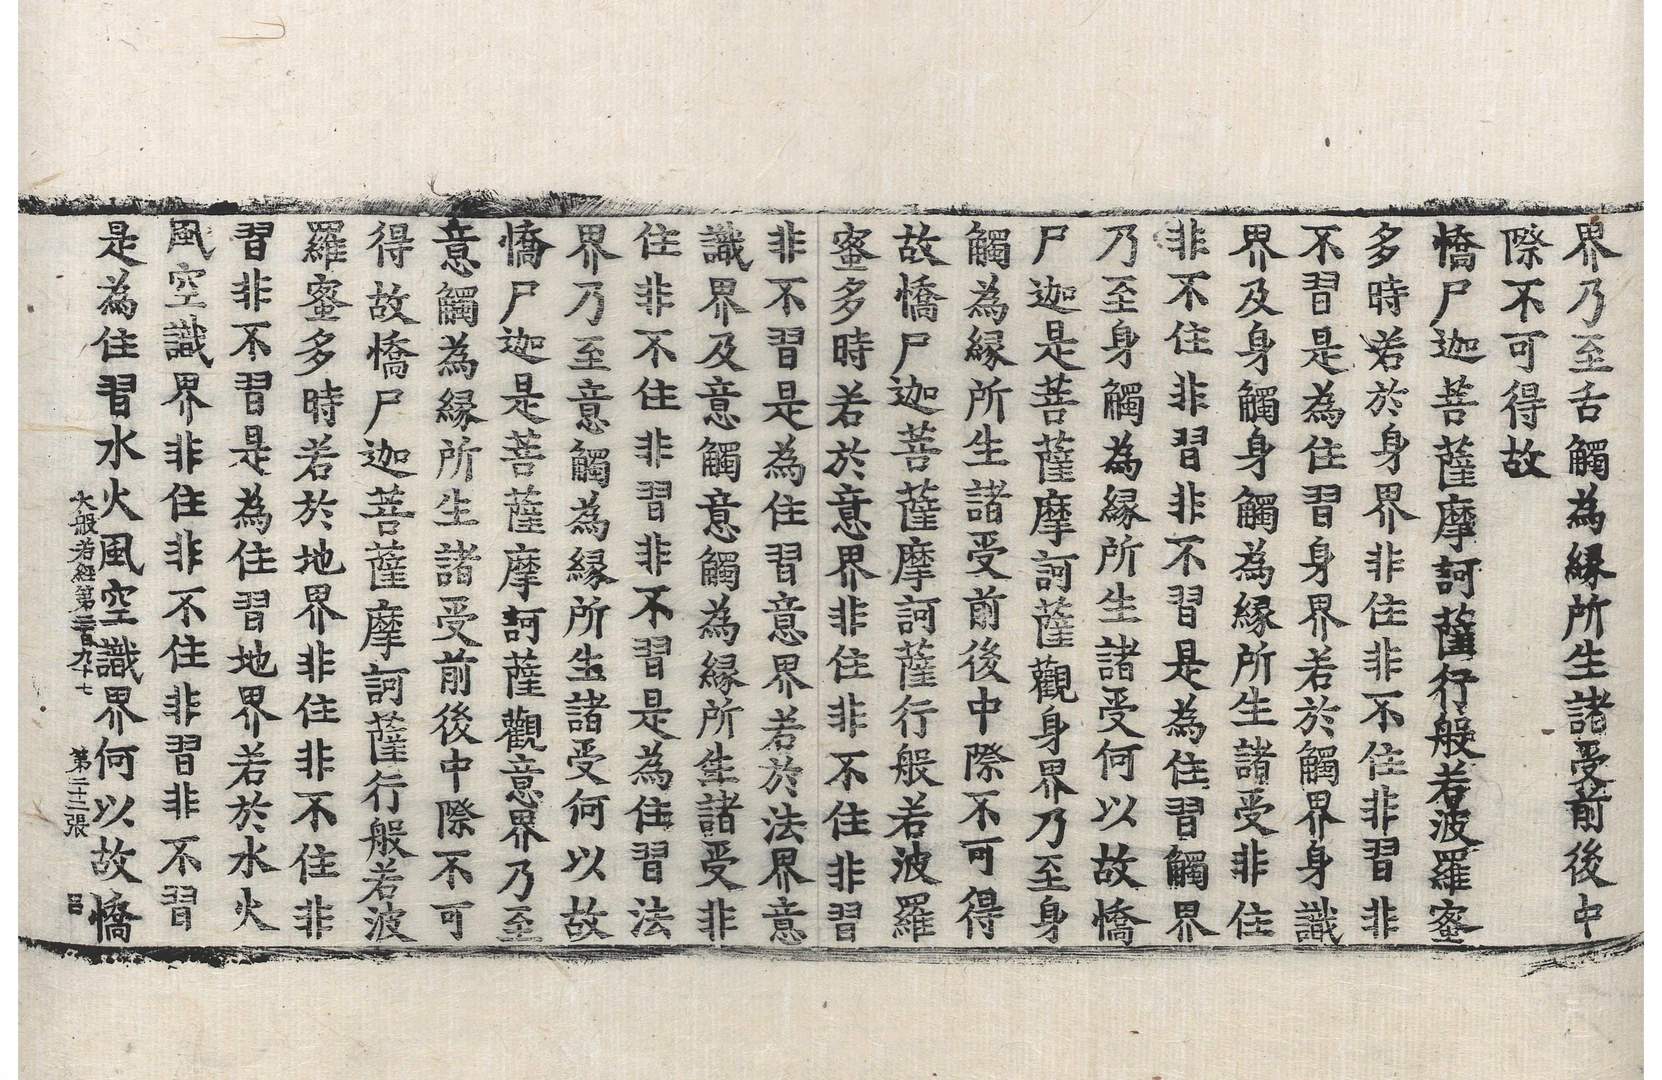 界乃至舌觸為緣所生諸受前後中
際不可得故
憍尸迦菩薩摩訶薩行般若波羅蜜
多時若於身界非住非不住非習非
不習是為住習身界若於觸界身識
界及身觸身觸為緣所生諸受非住
非不住非習非不習是為住習觸界
乃至身觸為緣所生諸受何以故憍
尸迦是菩薩摩訶薩觀身界乃至身
觸為緣所生諸受前後中際不可得
故憍尸迦菩薩摩訶薩行般若波羅
蜜多時若於意界非住非不住非習
非不習是為住習意界若於法界意
識界及意觸意觸為緣所生諸受非
住非不住非習非不習是為住習法
界乃至意觸為緣所生諸受何以故
憍尸迦是菩薩摩訶薩觀意界乃至
意觸為緣所生諸受前後中際不可
得故憍尸迦菩薩摩訶薩行般若波
羅蜜多時若於地界非住非不住非
習非不習是為住習地界若於水火
風空識界非住非不住非習非不習
是為住習水火風空識界何以故憍
大般若經第二百九十七 第二十二張 呂